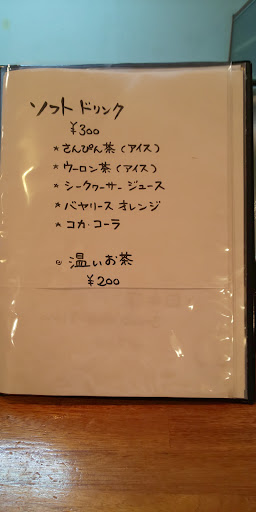 ソフト ドリンク
¥300
* さんぴん茶 (アイス)
* ウーロン茶 (アイス)
* シークヮーサー ジュース
* バヤリース オレンジ
* コカ・コーラ
◎ 温いお茶
¥200